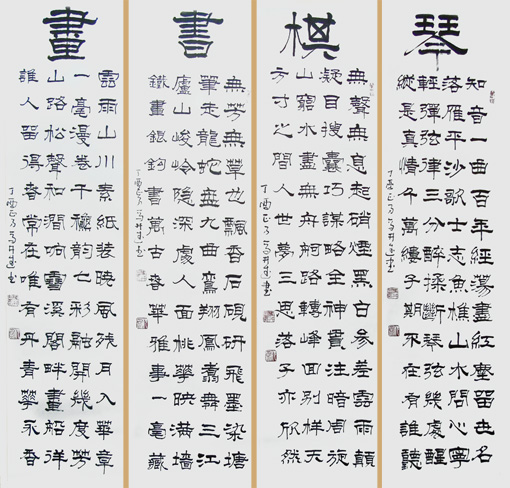 琴
知音一曲百年經蕩盡紅塵留世名
落雁平沙歌士志魚樵山水問心寧
輕彈弦律三分醉揉斷琴弦幾處醒
縱是真情千萬縷子期不在有誰聽
丁酉正月
棋
無聲無息起硝煙黑白參差雲雨顛
凝目搜囊巧謀略全神貫注暗周旋
山窮水盡無舟舸路轉峰回別樣天
方寸之間人世夢三思落子亦欣然
丁酉正月 書
書
無芳無草也飄香石硯研飛墨染塘
筆走龍蛇盤九曲鸞翔鳳翥舞三江
廬山峻嶺隱深處人面桃華映滿墻
鐵畫銀鉤書萬古春華雅事一毫藏
丁酉正月 書
畫
雲雨山川素紙裝映風殘月入華章
一毫漫卷千秋韻七彩融開幾度芳
山路松聲和澗響雪溪閣畔畫船徉
誰人留得春常在唯有丹青華永香
丁酉正月 書